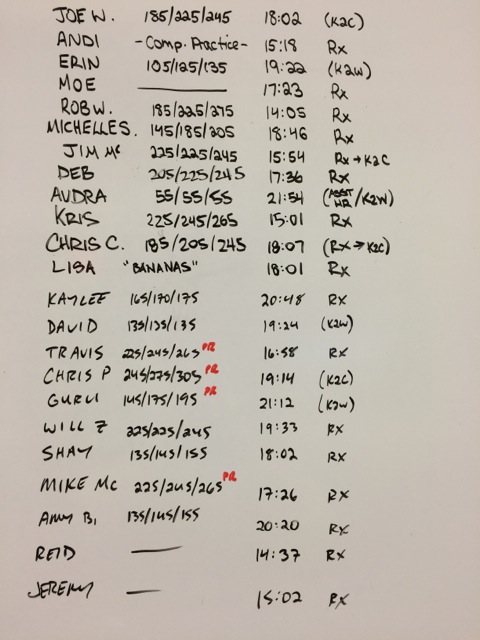 JOE W. 185/225/245 18:02 (K2C)
ANDI -Comp. Practice- 15:18 Rx
ERIN 105/125/135 19:22 (K2W)
MOE —— 17:23 Rx
ROB W. 185/225/275 14:05 Rx
MICHELLE S. 145/185/205 18:46 Rx
JIM Mc 225/225/245 15:54 Rx→K2C
DEB 205/225/245 17:36 Rx
AUDRA 55/55/55 21:54 (ASST HR/K2W)
KRIS 225/245/265 15:01 Rx
CHRIS C. 185/205/245 18:07 (Rx→K2C)
LISA "BANANAS" 18:01 Rx
KAYLEE 165/170/175 20:48 RX
DAVID 135/135/135 19:24 (K2W)
TRAVIS 225/245/265 PR 16:58 RX
CHRIS P 245/275/305 PR 19:14 (K2C)
GURVI 145/175/195 PR 21:12 (K2W)
WILL Z 225/225/245 19:33 RX
SHAY 135/145/155 18:02 RX
MIKE MC 225/245/265 PR 17:26 RX
AMY B, 135/145/155 20:20 RX
REID — 14:37 RX
JEREMY — 15:02 RX